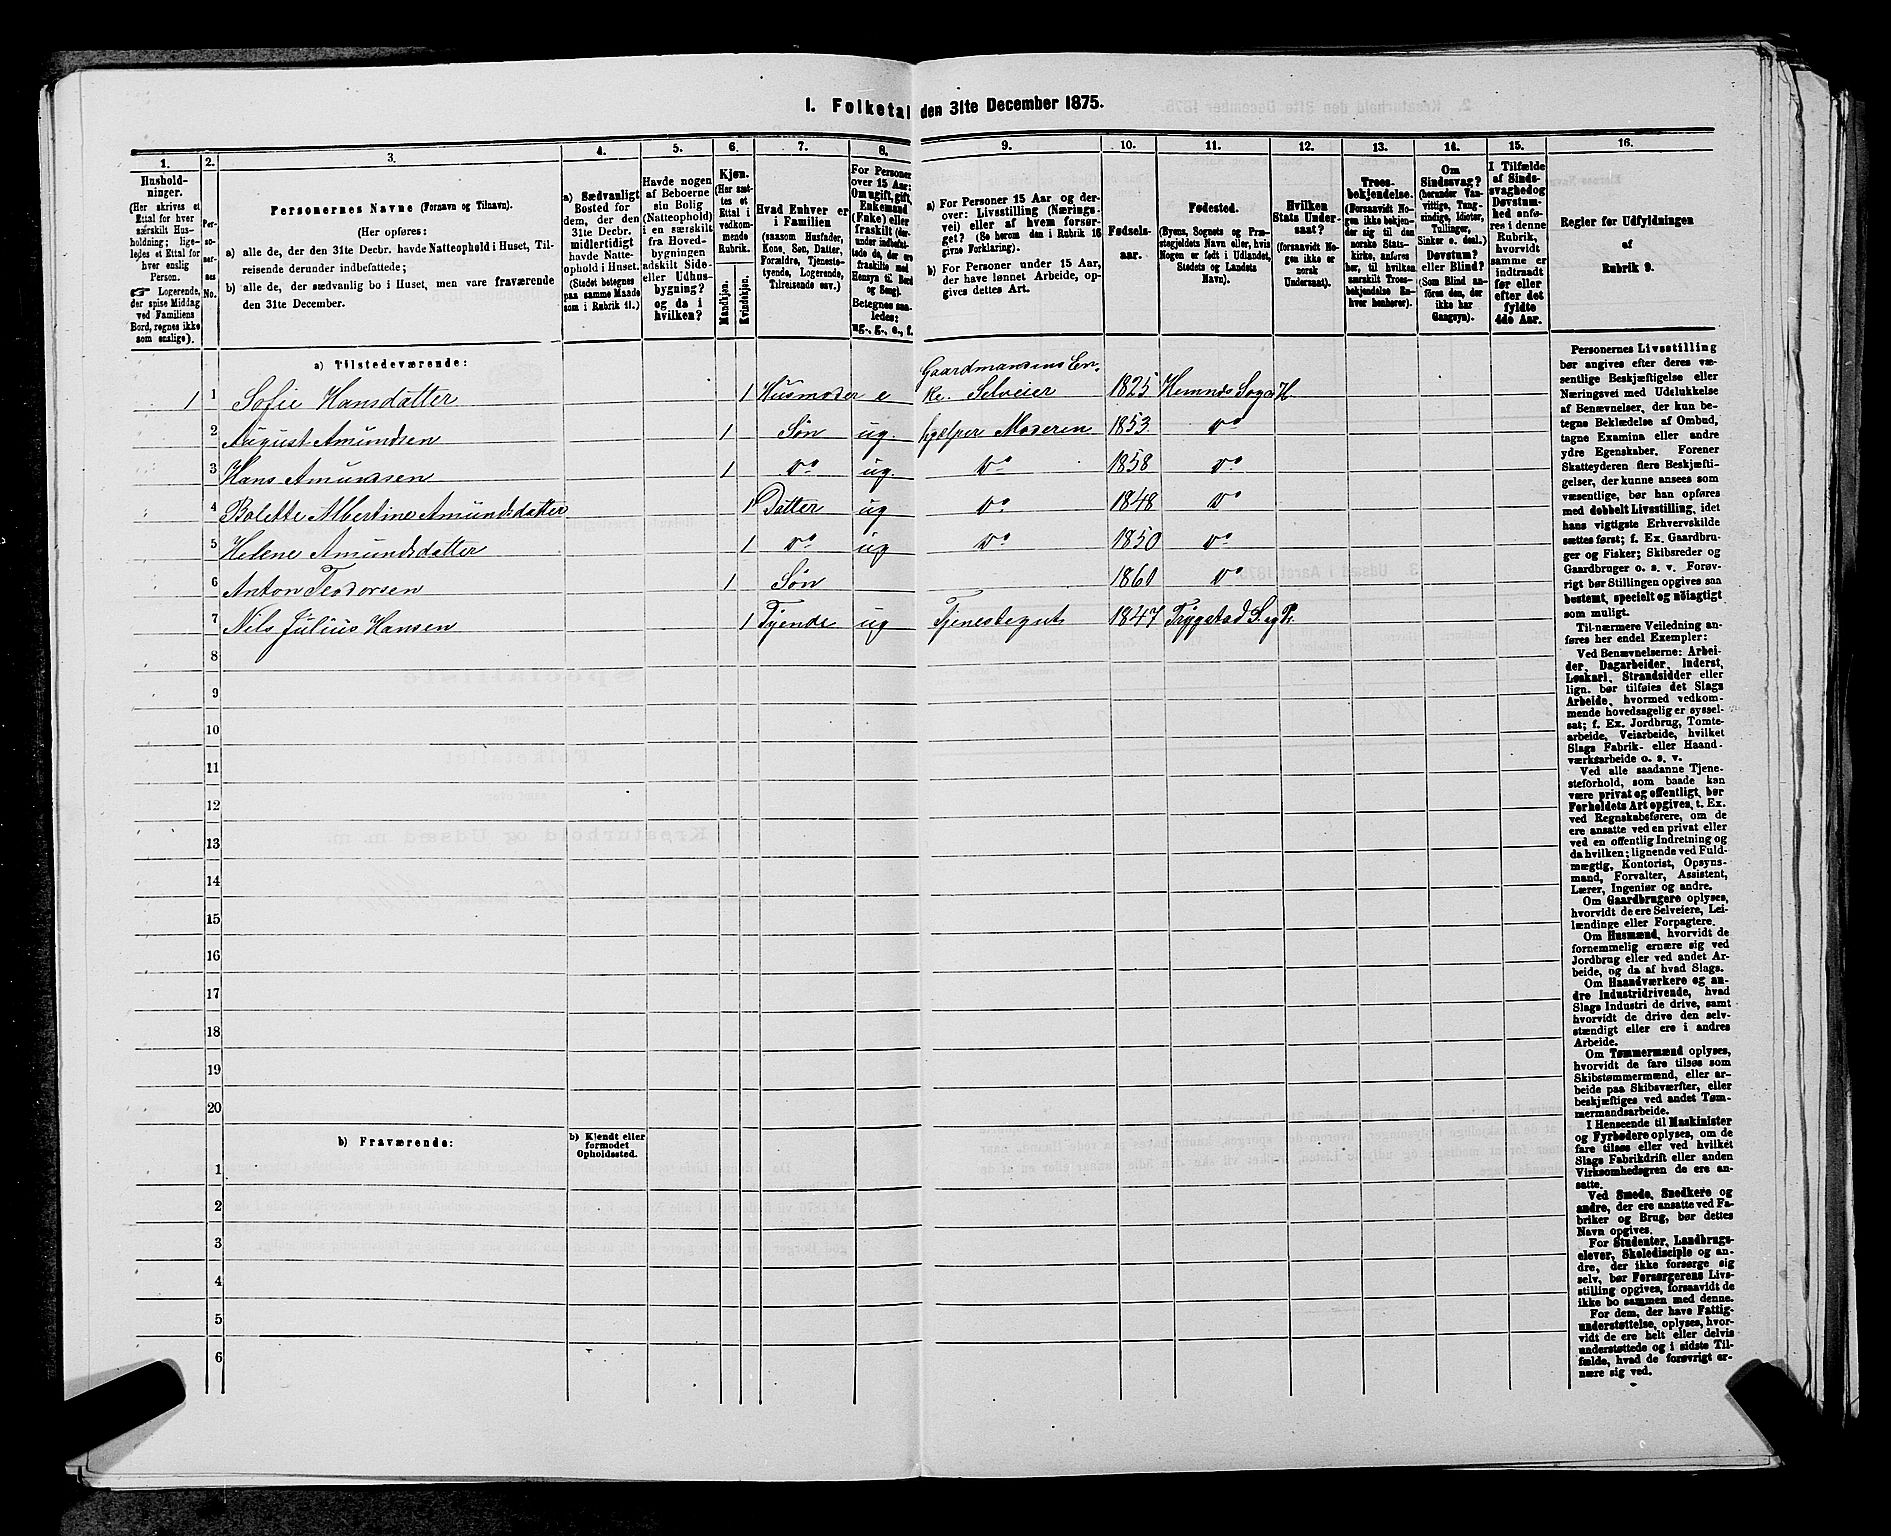 I. Folketal den 31te December 1875.
1. 2. 3. 4. 5. 6. 7. 8. 9. 10. 11. 12. 13. 14. 15. 16.
Husholdninger.
(Her skrives et
Ettal for hver
særskilt Husholdning; ligeledes
et Ettal for
hver enslig
Person.
☞ Logerende,
der spise Middag
ved Familiens
Bord, regnes ikke
som enslige).
Personernes No.
Personernes Navne (Fornavn og Tilnavn).
(Her opføres:
a) alle de, der den 31te Decbr. havde Natteophold i Huset, Tilreisende derunder indbefattede;
b) alle de, der sædvanlig bo i Huset, men vare fraværende
den 31te December.
a) Sædvanligt
Bosted for
dem, der den
31te Decbr.
midlertidigt
havde Natteophold
i Huset.
(Stedet betegnes
paa samme Maade
som i Rubrik 11.)
Havde nogen
af Beboerne
sin Bolig
(Natteophold)
i en særskilt
fra Hovedbygningen
adskilt Side-
eller Udhusbygning?
og da i
hvilken?
Kjøn.
(Her sættes et
Ettal i
vedkommende
Rubrik.
Mandkjøn.
Kvindekjøn.
Hvad Enhver er
i Familien
(saasom Husfader,
Kone, Søn, Datter,
Forældre, Tjenestetyende,
Logerende,
Tilreisende osv.)
For Personer
over 15 Aar:
Om ugift, gift,
Enkemand
(Enke) eller
fraskilt (derunder
indbefattede
de, der
ere fraskilte med
Hensyn til Bord
og Seng).
Betegnes saaledes:
ug., g., e., f.
a) For Personer 15 Aar og derover:
Livsstilling (Næringsvei)
eller af hvem forsørget?
(Se herom den i Rubrik 16
givne Forklaring).
b) For Personer under 15 Aar,
der have lønnet Arbeide, opgives
dettes Art.
Fødselsaar.
Fødested.
(Byens, Sognets og Præstegjeldets
Navn eller, hvis
Nogen er født i Udlandet,
Stedets og Landets
Navn).
Hvilken
Stats Undersaat?
(forsaavidt Nogen
ikke er
norsk
Undersaat).
Troesbekjendelse.
(Forsaavidt Nogen
ikke bekjender
sig til den
norske Statskirke,
anføres
her, til hvilken
særskilt Troesbekjendelse
Enhver
henhører).
Om
Sindssvag?
(herunder Vanvittige,
Tungsindige,
Idioter,
Tullinger,
Sinker o. desl.)
Døvstum?
eller Blind?
(Som Blind anføres
den, der
ikke har
Gangsyn).
I Tilfælde
af Sindssvaghed
og
Døvstumhed
anføres
i denne
Rubrik,
hvorvidt
samme er
indtraadt
før eller
efter det
fyldte
4de Aar.
Regler for Udfyldningen
af
Rubrik 9.
a) Tilstedeværende:
1 1 Sofie Hansdatter 1 Husmoder e Gaardmandens En-
ke. Selveier 1825 Hemnes Sogn H.
2 August Amundsen 1 Søn ug. hjælper Moderen 1853 do
3 Hans Amundsen 1 do ug. do 1858 do
4 Bolette Albertine Amundsdatter 1 Datter ug do 1848 do
5 Helene Amundsdatter 1 do ug do 1850 do
6 Anton Teodorsen 1 Søn 1860 do
7 Nils Julius Hansen 1 Tyende ug Tjenestegut 1847 Trygstad S. og P.
8
9
10
11
12
13
14
15
16
17
18
19
20
b) Fraværende:
b) Kjendt eller
formodet
Opholdssted.
1
2
3
4
5
6
Personernes Livsstilling
bør angives efter deres væsentlige
Beskjæftigelse eller
Næringsvei med Udelukkelse
af Benævnelser, der kun betegne
Beklædelse af Ombud,
tagne Examina eller andre
ydre Egenskaber. Forener
Skatteyderen flere Beskjæftigelser,
der kunne ansees som
væsentlige, bør han opføres
med dobbelt Livsstilling, idet
hans vigtigste Erhvervskilde
sættes først; f. Ex. Gaardbruger
og Fisker; Skibsreder og
Gaardbruger o. s. v. Forøvrigt
bør Stillingen opgives saa
bestemt, specielt og nøiagtigt
som muligt.
Til nærmere Veiledning anføres
her endel Exempler:
Ved Benævnelserne: Arbeider,
Dagarbeider, Inderst,
Løskarl, Strandsidder eller
lign. bør tilføies det Slags
Arbeide, hvormed vedkommende
hovedsagelig er sysselsat;
f. Ex. Jordbrug, Tomtearbeide,
Veiarbeide, hvilket
Slags Fabrik- eller Haandværksarbeide
o. s. v.
Ved alle saadanne Tjenesteforhold,
som baade kan
være privat og offentligt, bør
Forholdets Art opgives, t. Ex.
ved Regnskabsførere, om de
ere ansatte ved en privat eller
ved en offentlig Indretning og
da hvilken; lignende ved Fuldmægtig,
Kontorist, Opsynsmand,
Forvalter, Assistent,
Lærer, Ingeniør og andre.
Om Gaardbrugere oplyses,
hvorvidt de ere Selveiere, Leilændinge
eller Forpagtere.
Om Husmænd, hvorvidt de
fornemmelig ernære sig ved
Jordbrug eller ved andet Arbeide,
og da af hvad Slags.
Om Haandværkere og andre
Industridrivende, hvad
Slags Industri de drive, samt
hvorvidt de drive den selvstændigt
eller ere i andres
Arbeide.
Om Tømmermænd oplyses,
hvorvidt de fare tilsøs som
Skibstømmermænd, eller arbeide
paa Skibsværfter, eller
beskjæftiges ved andet Tømmermandsarbeide.
I Henseende til Maskinister
og Fyrbødere oplyses, om de
fare tilsøs eller ved hvilket
Slags Fabrikdrift eller anden
Virksomhedsgren de ere ansatte.
Ved Smede, Snedkere og
andre, der ere ansatte ved Fabriker
og Brug, bør dettes
Navn opgives.
For Studenter, Landbrugselever,
Skoledisciple og andre,
der ikke forsørge sig
selv, bør Forsørgerens Livsstilling
opgives, forsaavidt de
ikke bo sammen med denne.
For dem, der have Fattigunderstøttelse,
oplyses, hvorvidt
de ere helt eller delvis
understøttede og i sidste Tilfælde,
hvad de forøvrigt ernære
sig ved.